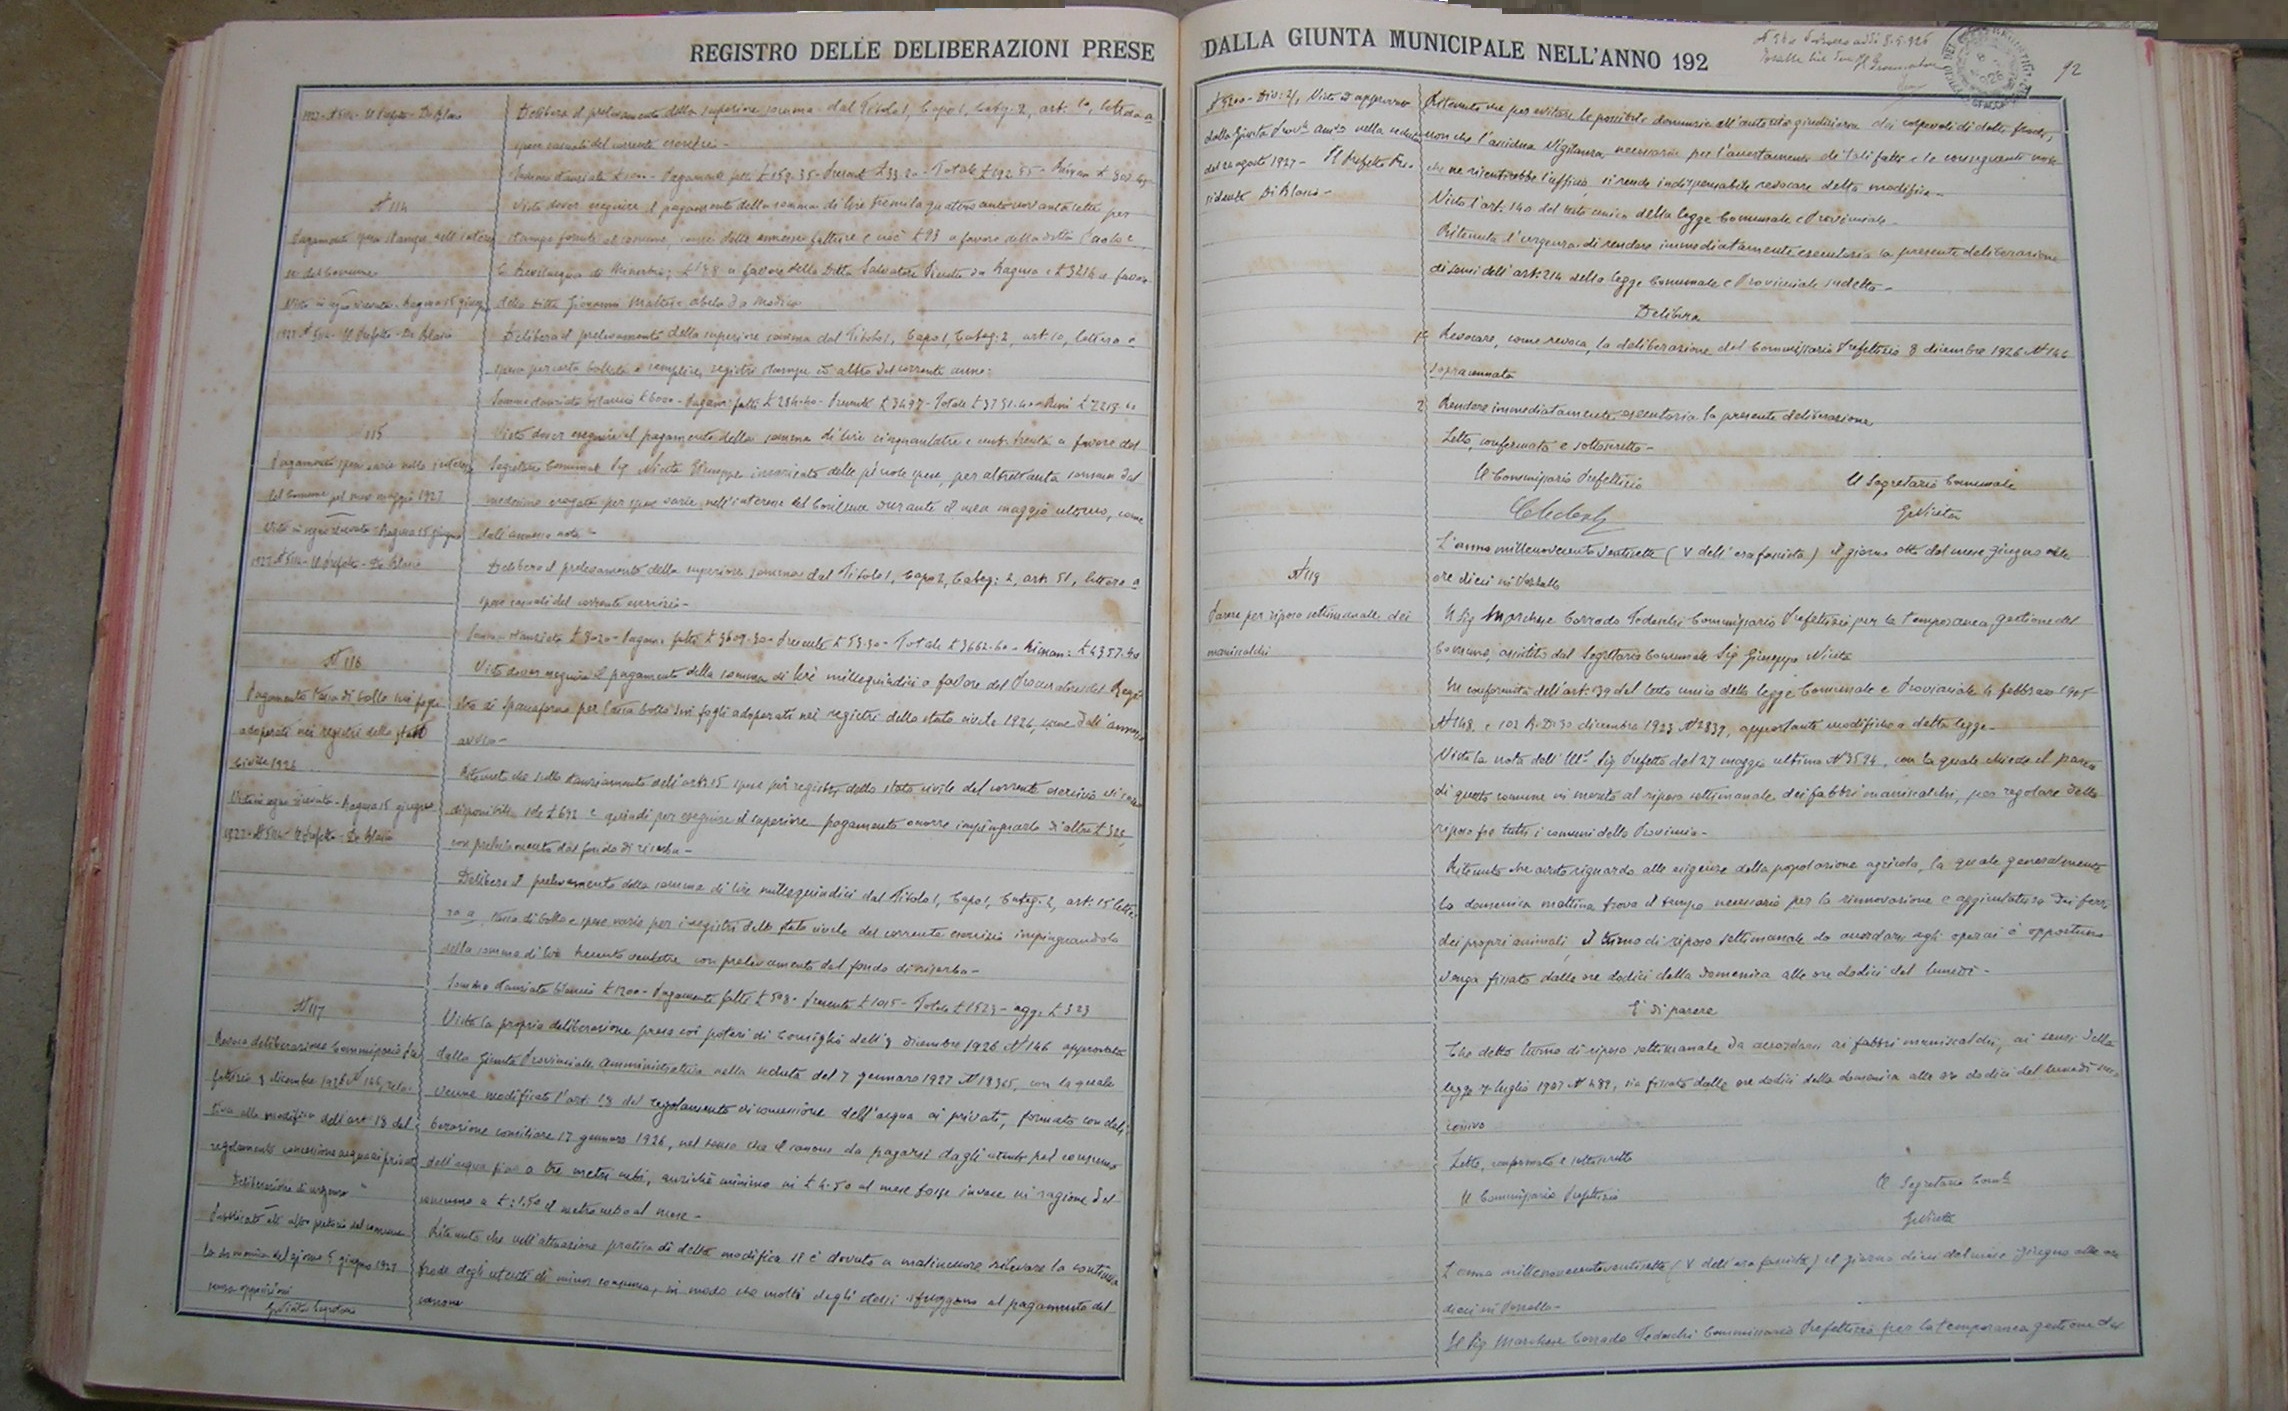 REGISTRO DELLE DELIBERAZIONI PRESE
1927 - N 5114 - Il Prefetto - De Blasio
Delibera il prelevamento della superiore somma dal Titolo I, Capo I, Categ: 2, art. 10, lettera a
spese casuali del corrente esercizio -
N 114
Visto dover eseguire il pagamento della somma di lire tremilaquattrocentonovantasette per
Pagamento spese stampe nell'interes
stampe fornite al comune, come dalle annesse fatture e cioè £ 93 a favore della ditta Paolo e
se del Comune
C. Bevilacqua di Minerbio; £ 188 a favore della Ditta Salvatore Piccitto da Ragusa e £ 3216 a favore
Visto in ogni riservato - Ragusa 15 giugno
della Ditta Giovanni Maltese Abela da Modica
1927 N 5114 - Il Prefetto - De Blasio
Delibera il prelevamento della superiore somma dal Titolo I, Capo I, Categ: 2, art. 10, lettera a
spese per carta bollata e semplice, registri stampe ed altro del corrente anno:
115
Visto dover eseguire il pagamento della somma di lire cinquantatre e cent. trenta a favore del
Pagamento spese varie nello interesse
Segretario Comunale Sig Nicita Giuseppe incaricato delle piccole spese, per altrettanta somma dal
del Comune pel mese maggio 1927
medesimo erogata per spese varie nell'interesse del Comune durante il mese maggio ultimo, come
Visto in ogni riservato - Ragusa 15 giugno
dall'annessa nota -
1927 N 5114 - Il Prefetto - De Blasio
Delibera il prelevamento della superiore somma dal Titolo I, Capo 2, Categ: 2, art. 51, lettera a
spese casuali del corrente esercizio -
Somma stanziata £ 8020 - Pagam: fatti £ 3609.30 - Presente £ 53.30 - Totale £ 3662.60 - Riman: £ 4357.40
N 116
Visto dover eseguire il pagamento della somma di lire millequindici a favore del Procuratore del Regi
Pagamento tassa di bollo sui fogli
stro di Spaccaforno per tassa bollo sui fogli adoperati nei registri dello stato civile 1926, come dall'annesso
adoperati nei registri dello stato
avviso -
Civile 1926
Ritenuto che sullo stanziamento dell'art. 15 spese pei registri dello stato civile del corrente esercizio vi sono
Visto in ogni riservato - Ragusa 15 giugno
disponibile sole £ 692 e quindi per eseguire il superiore pagamento occorre impinguarlo di altre £ 323,
1927 - N 5114 - Il Prefetto - De Blasio
con prelevamento dal fondo di riserva -
Delibera il prelevamento della somma di lire millequindici dal Titolo I, Capo I, Categ: 2, art. 15 lette
ra a, tassa di bollo e spese varie per i registri dello stato civile del corrente esercizio impinguandola
della somma di lire trecento ventitre con prelevamento dal fondo di riserva -
Somma stanziata bilancio £ 1200 - Pagamenti fatti £ 508 - Presente £ 1015 - Totale £ 1523 - agg: £ 323
N 117
Vista la propria deliberazione presa coi poteri di Consiglio dell'8 dicembre 1926 N 146 approvata
Revoca deliberazione Commissario Pre
dalla Giunta Provinciale Amministrativa nella seduta del 7 gennaro 1927 N 18365, con la quale
fettizio 8 dicembre 1926 N 146, rela
venne modificato l'art. 18 del regolamento di concessione dell'acqua ai privati, formato con deli
tiva alla modifica dell'art 18 del
berazione consiliare 17 gennaro 1926, nel senso che il canone da pagarsi dagli utenti pel consumo
regolamento concessione acqua ai privati
dell'acqua fino a tre metri cubi, anzichè minimo in £ 4.50 al mese fosse invece in ragione del
Deliberazione di urgenza
consumo a £ 1.50 il metro cubo al mese -
Pubblicata all'albo pretorio del comune
Ritenuto che nell'attuazione pratica di detta modifica si è dovuto a malincuore rilevare la continua
la domenica del giorno 5 giugno 1927
frode degli utenti di minor consumo, in modo che molti degli stessi sfuggono al pagamento del
senza opposizioni
canone
G Nicita Segretario
DALLA GIUNTA MUNICIPALE NELL'ANNO 192
92
Ritenuto che per evitare le possibili denunzie all'autorità giudiziaria dei colpevoli di dette frodi,
dalla Giunta Prov. Amm. nella seduta
non che l'assidua vigilanza necessaria per l'accertamento di tali fatti e le conseguenti noie
del 20 agosto 1927 - Il Prefetto Pre
che ne risentirebbe l'ufficio, si rende indispensabile revocare detta modifica -
sidente De Blasio -
Visto l'art. 140 del testo unico della legge Comunale e Provinciale -
Ritenuta l'urgenza di rendere immediatamente esecutoria la presente deliberazione
ai sensi dell'art. 214 della legge Comunale e Provinciale sudetta -
Delibera
1° Revocare, come revoca, la deliberazione del Commissario Prefettizio 8 dicembre 1926 N 146
sopracennata
2° Rendere immediatamente esecutoria la presente deliberazione
Letto, confermato e sottoscritto -
Il Commissario Prefettizio
Il Segretario Comunale
G Nicita
L'anno millenovecentoventisette (V dell'era fascista) il giorno otto del mese giugno alle
N 118
ore dieci in Pozzallo
Parere per riposo settimanale dei
Il Sig Marchese Corrado Tedeschi Commissario Prefettizio per la temporanea gestione del
maniscalchi
Comune, assistito dal Segretario Comunale Sig Giuseppe Nicita
In conformità dell'art. 139 del testo unico della legge Comunale e Provinciale 4 febbraio 1915
N 148, e 102 R. D. 30 dicembre 1923 N 2839, apportante modifiche a detta legge -
Vista la nota dell'Ill. Sig Prefetto del 27 maggio ultimo N 3594, con la quale chiede il parere
di questo comune in merito al riposo settimanale dei fabbri maniscalchi, per regolare detto
riposo fra tutti i comuni della Provincia -
Ritenuto che avuto riguardo alle esigenze della popolazione agricola, la quale generalmente
la domenica mattina trova il tempo necessario per la rinnovazione e aggiustatura dei ferri
dei propri animali, il turno di riposo settimanale da accordare agli operai è opportuno
venga fissato dalle ore dodici della domenica alle ore dodici del lunedì -
E' di parere
Che detto turno di riposo settimanale da accordarsi ai fabbri maniscalchi, ai sensi della
legge 7 luglio 1907 N 489, sia fissato dalle ore dodici della domenica alle ore dodici del lunedì suc
cessivo
Letto, confermato e sottoscritto
Il Commissario Prefettizio
Il Segretario Com.le
G Nicita
L'anno millenovecentoventisette (V dell'era fascista) il giorno dieci del mese giugno alle ore
dieci in Pozzallo -
Il Sig Marchese Corrado Tedeschi Commissario Prefettizio per la temporanea gestione del